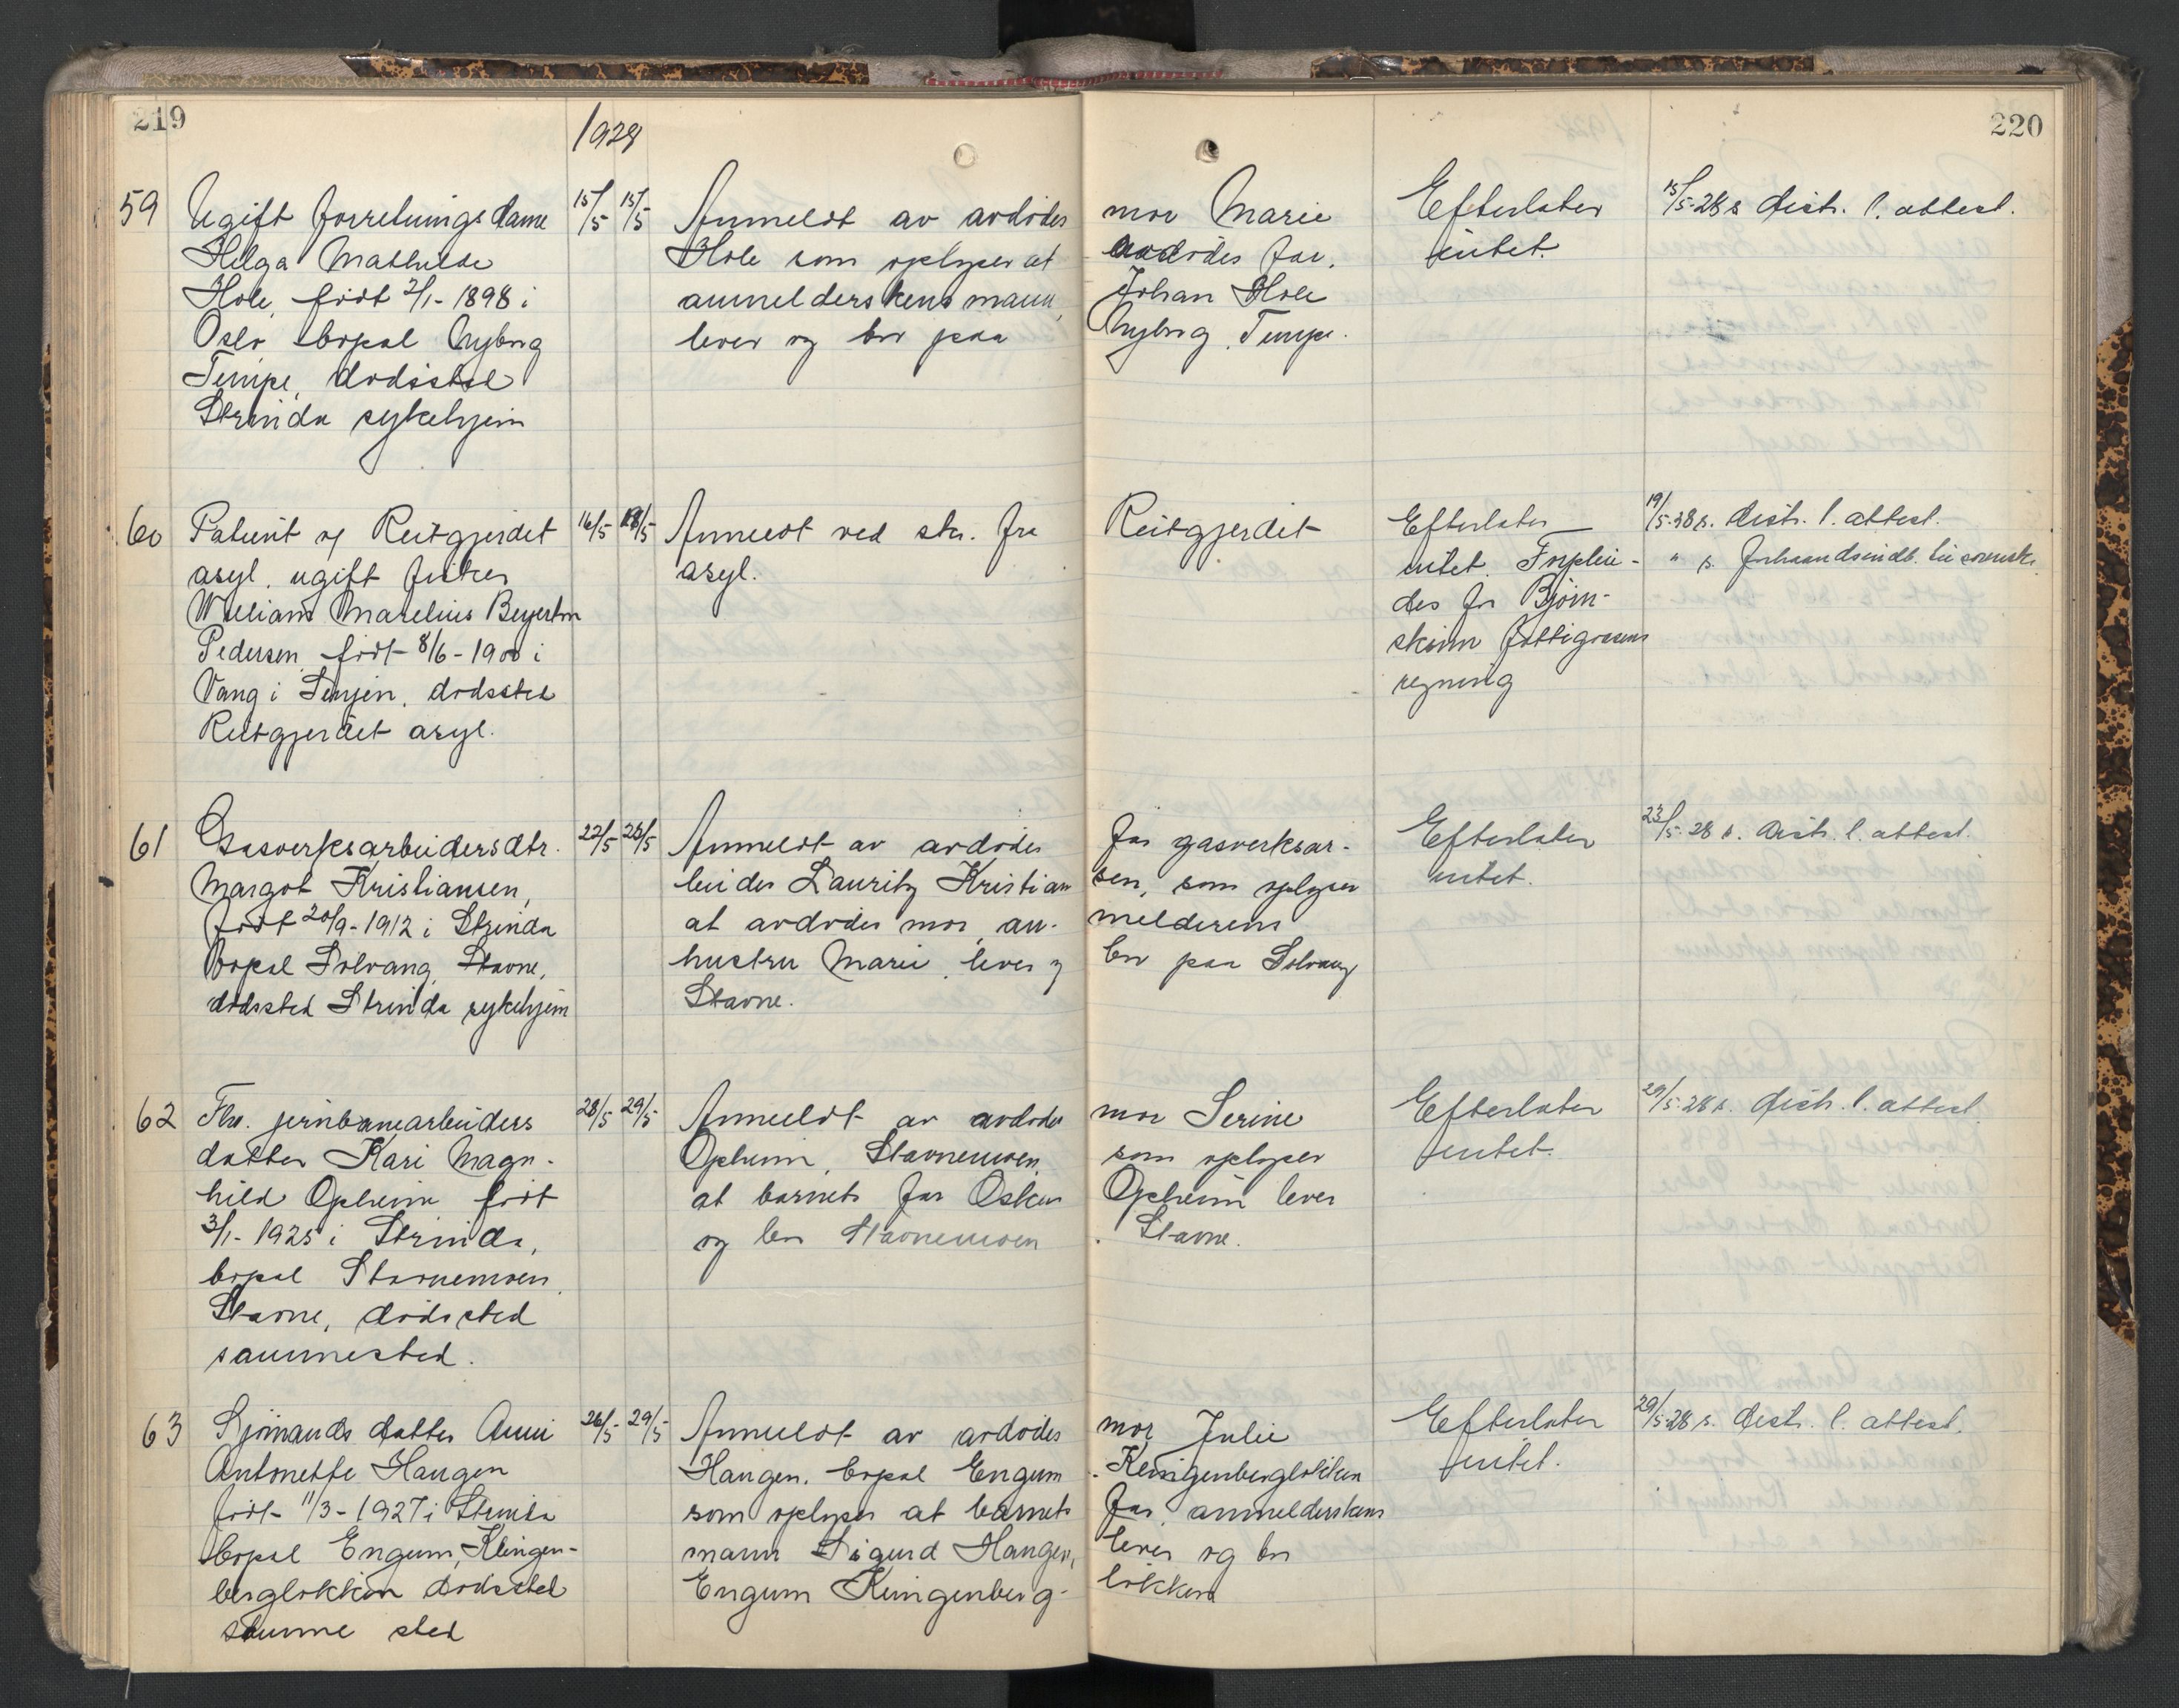 219
1928
220
59
Ugift forretningsdame
Helga Mathilde
Hole, født 2/1-1898 i
Oslo bopæl Nyborg
Tempe, dødssted
Strinda sykehjem
15/5 15/5
Anmeldt av avdødes mor Marie
Hole som oplyser at avdødes far,
anmelderskens mann, Johan Hole
lever og bor paa Nyborg, Tempe.
Efterlater
intet.
15/5-28 s. distr. l. attest.
60
Patient og Reitgjerdet
asyl, ugift fisker
William Marelius Beyerbom
Pedersen født 8/6-1900 i
Vang i Senjen, dødssted
Reitgjerdet asyl.
16/5 18/5
Anmeldt ved skr. fra Reitgjerdet
asyl.
Efterlater
intet. Forplei-
des for Bjørn-
skinn fattigvesens
regning
19/5-28 s. distr. l. attest.
" s. forhaandsindb. til
61
Gasverksarbeidersdtr.
Margot Kristiansen,
født 20/9-1912 i Strinda
Bopæl Solvang, Stavne,
dødssted Strinda sykehjem
22/5 23/5
Anmeldt av avdødes far gasverksar-
beider Lauritz Kristiansen, som oplyser
at avdødes mor, anmelderens
hustru Marie, lever og bor paa Solvang
Stavne.
Efterlater
intet.
23/5-28 s. distr. l. attest.
62
Fhv. jernbanearbeiders
datter Kari Magn-
hild Opheim født
3/1-1925 i Strinda,
bopæl Stavnemoen,
Stavne, dødssted
sammested.
28/5 29/5
Anmeldt av avdødes mor Serine
Opheim, Stavnemoen, som oplyser
at barnets far Oskar Opheim lever
og bor Stavnemoen Stavne.
Efterlater
intet.
29/5-28 s. distr. l. attest.
63
Sjømands datter Anni
Antonette Haugen
født 11/3-1927 i Strinda
bopæl Engum, Klingen-
bergløkken dødssted
samme sted
26/5 29/5
Anmeldt av avdødes mor Julie
Haugen, bopæl Engum Klingenbergløkken
som oplyser at barnets far, anmelderskens
mann Sigurd Haugen, lever og bor
Engum Klingenberg- løkken
Efterlater
intet.
29/5-28 s. distr. l. attest.